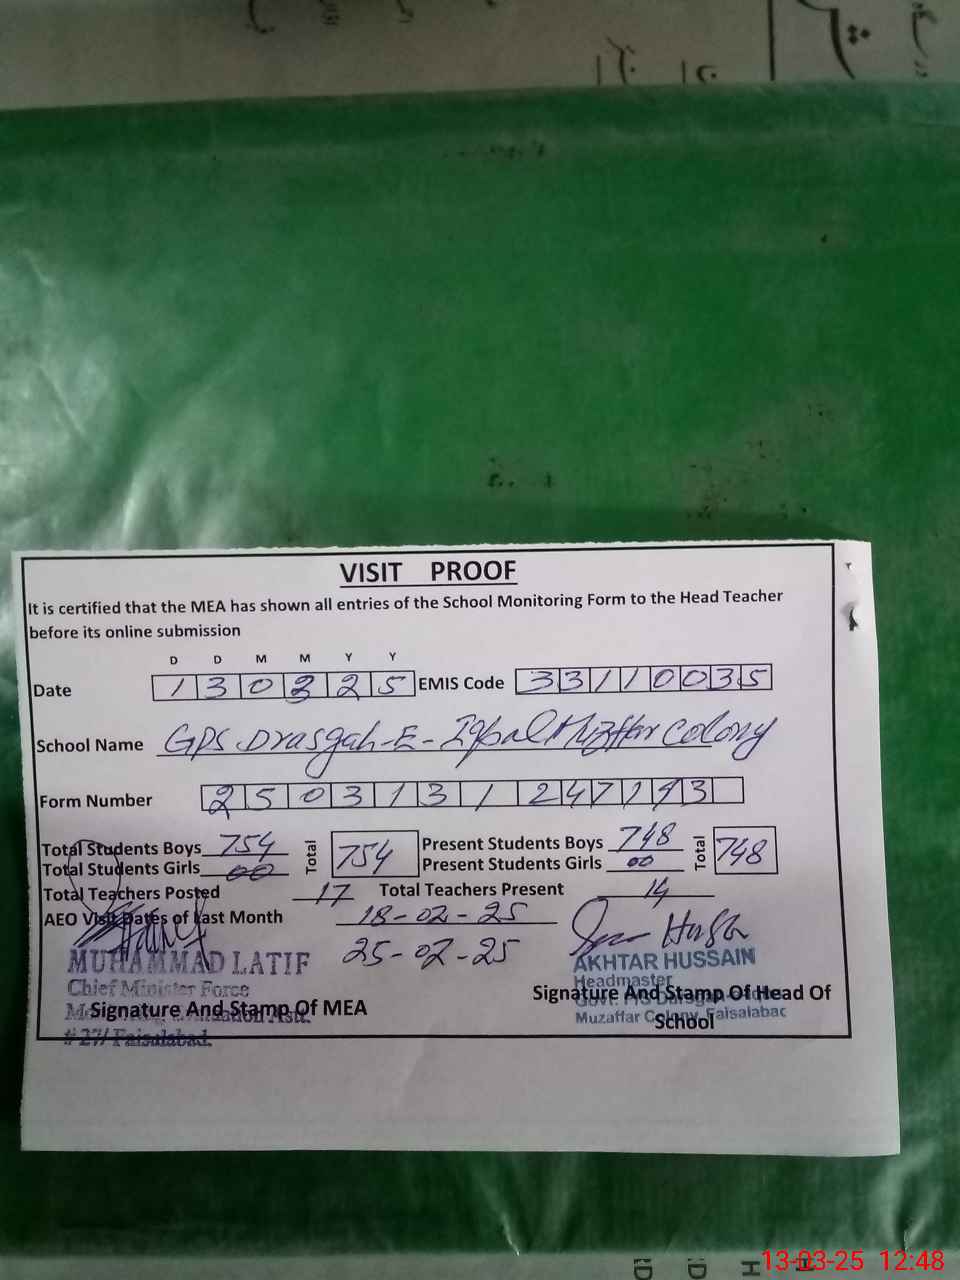 VISIT PROOF
It is certified that the MEA has shown all entries of the School Monitoring Form to the Head Teacher
before its online submission
D D M M Y Y
Date 130325 EMIS Code 33110035
School Name GPS Drasgah-E-Iqbal Muzffar Colony
Form Number 2503131247193
Total Students Boys 754 Total 754 Present Students Boys 748 Total 748
Total Students Girls 00 Present Students Girls 00
Total Teachers Posted 17 Total Teachers Present 14
AEO Visit Dates of Last Month 18-02-25
25-02-25
MUHAMMAD LATIF
Chief Minister Force
# 27/ Faisalabad.
Signature And Stamp Of MEA
AKHTAR HUSSAIN
Headmaster
Muzaffar Colony, Faisalabad
Signature And Stamp Of Head Of
School
13-03-25 12:48